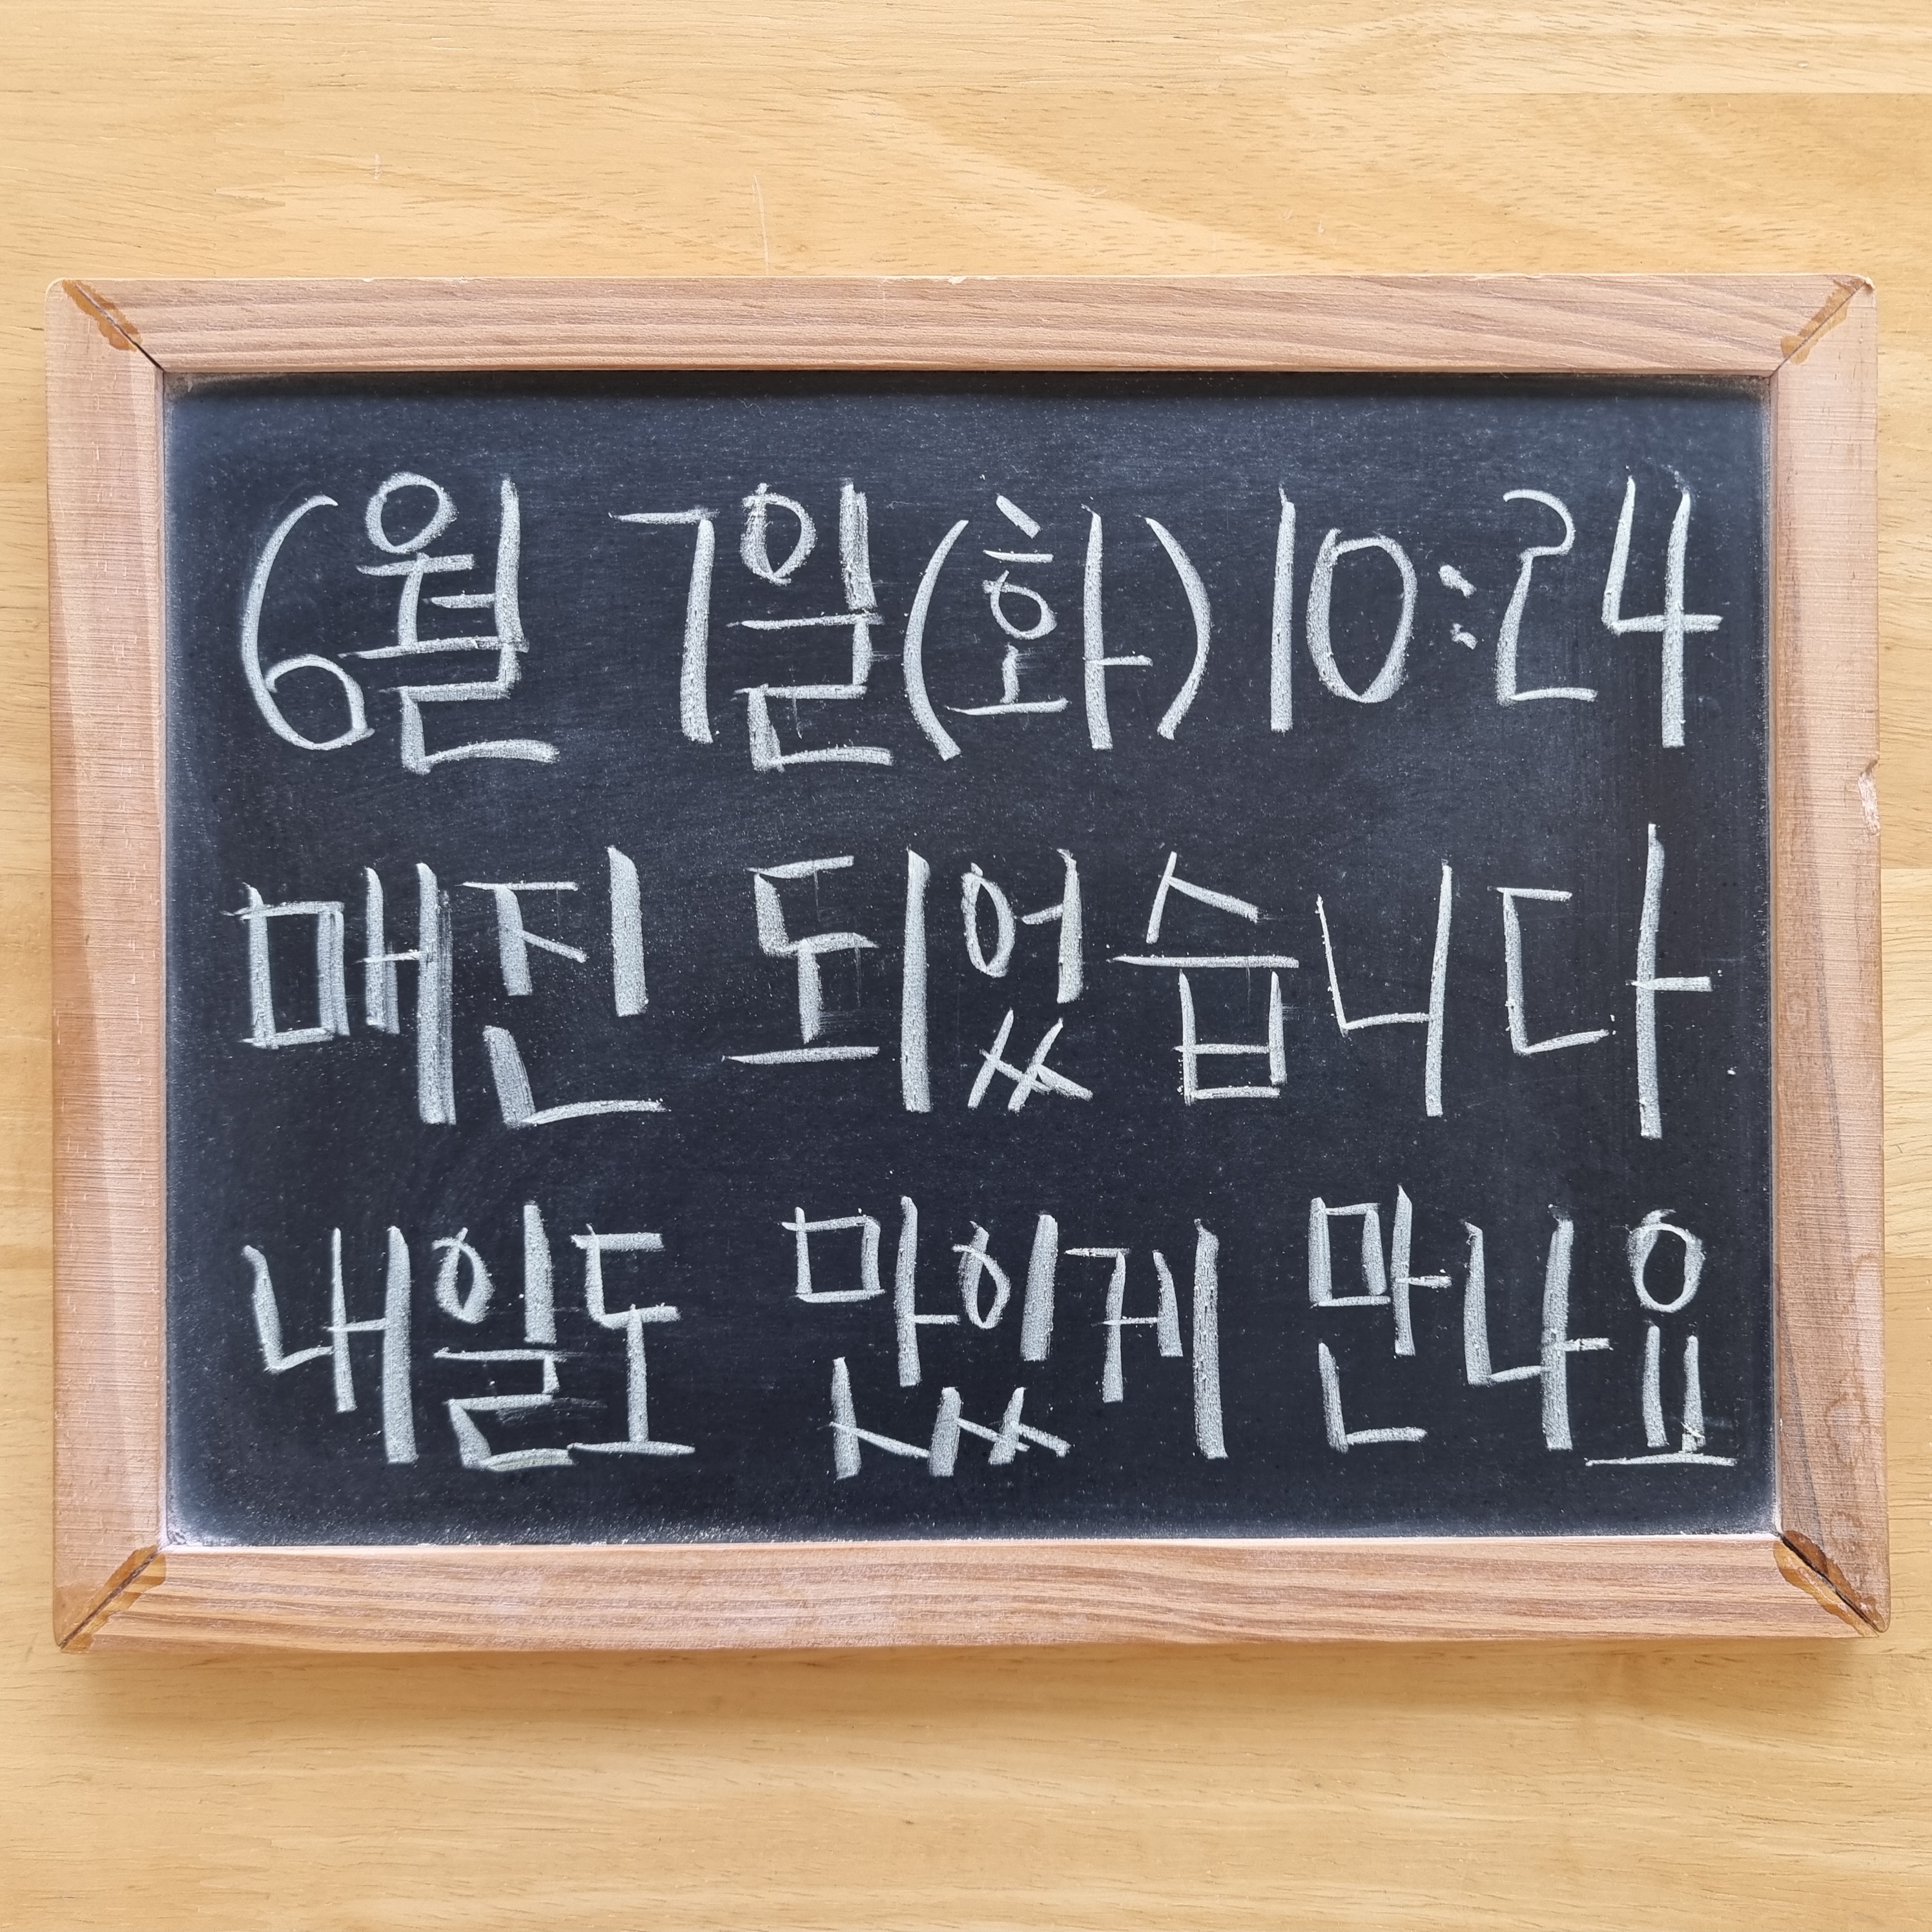 6월 7일(화)10:24
매진 되었습니다
내일도 맛있게 만나요